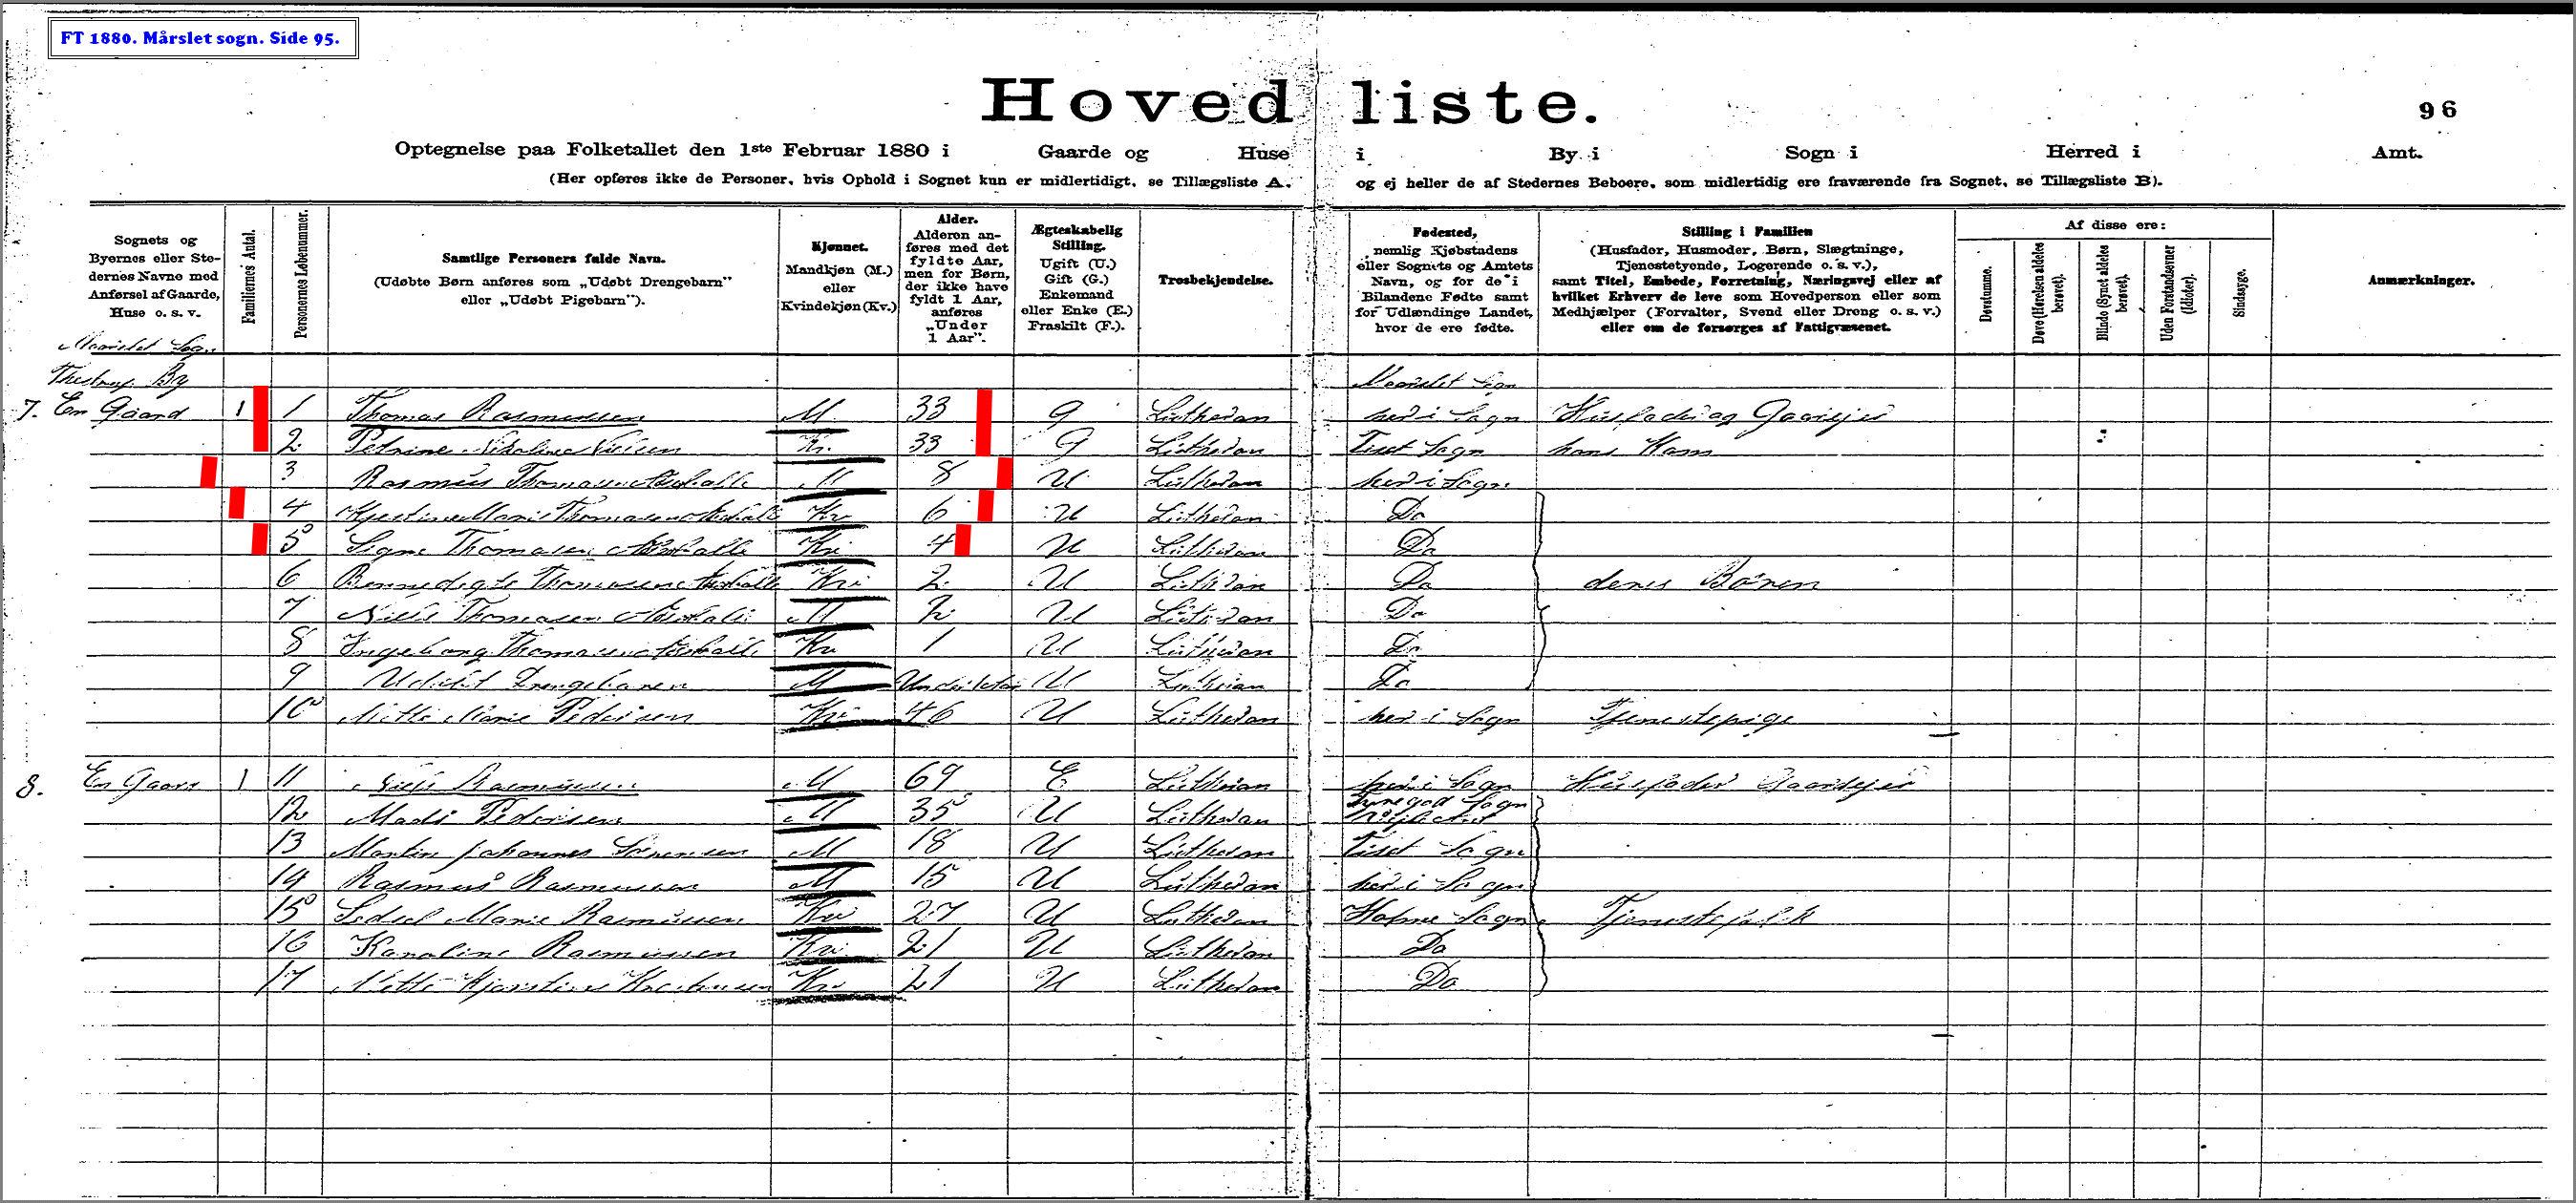 FT 1880. Mårslet sogn. Side 95.
Hovedliste.
96
Optegnelse paa Folketallet den 1ste Februar 1880 i Gaarde og Huse i By i Sogn i Herred i Amt.
(Her opføres ikke de Personer, hvis Ophold i Sognet kun er midlertidigt, se Tillægsliste A, og ej heller de af Stedernes Beboere, som midlertidig ere fraværende fra Sognet, se Tillægsliste B).
Sognets og
Byernes eller Ste-
dernes Navne med
Anførsel af Gaarde,
Huse o. s. v.
Familiernes Antal.
Personernes Løbenummer.
Samtlige Personers fulde Navn.
(Udøbte Børn anføres som „Udøbt Drengebarn"
eller „Udøbt Pigebarn").
Kjønnet.
Mandkjøn (M.)
eller
Kvindekjøn (Kv.)
Alder.
Alderen an-
føres med det
fyldte Aar,
men for Børn,
der ikke have
fyldt 1 Aar,
anføres
„Under
1 Aar".
Ægteskabelig
Stilling.
Ugift (U.)
Gift (G.)
Enkemand
eller Enke (E.)
Fraskilt (F.).
Trosbekjendelse.
Fødested,
nemlig Kjøbstadens
eller Sognets og Amtets
Navn, og for de i
Bilandene Fødte samt
for Udlændinge Landet,
hvor de ere fødte.
Stilling i Familien
(Husfader, Husmoder, Børn, Slægtninge,
Tjenestetyende, Logerende o. s. v.),
samt Titel, Embede, Forretning, Næringsvej eller af
hvilket Erhverv de leve som Hovedperson eller som
Medhjælper (Forvalter, Svend eller Dreng o. s. v.)
eller om de forsørges af Fattigvæsenet.
Af disse ere:
Døvstumme.
Døve (Hørelsen aldeles
berøvet).
Blinde (Synet aldeles
berøvet).
Uden Forstandsevner
(Idioter).
Sindssyge.
Anmærkninger.
Maarslet Sogn
Thestrup By Maarslet Sogn
7. En Gaard 1 1 Thomas Rasmussen M 33 G Lutheran her i Sogn Husfader og Gaardejer
2 Petrine Nikoline Nielsen Kv. 33 G Lutheran Tiset Sogn hans Kone
3 Rasmus Thomasen M 8 U Lutheran her i Sogn
4 Kjerstine Marie Thomasen Kv 6 U Lutheran Do
5 Signe Thomasen Kv 4 U Lutheran Do
6 Bennedigte Thomasen Kv 2 U Lutheran Do deres Børen
7 Niels Thomasen M 2 U Lutheran Do
8 Ingeborg Thomasen Kv 1 U Lutheran Do
9 Udøbt Drengebaren M Under 1 Aar U Lutheran Do
10 Mette Marie Pedersen Kv 46 U Lutheran her i Sogn Tjenestepige
8. En Gaard 1 11 Rasmussen M 69 E Lutheran her i Sogn Husfader Gaardejer
12 Mads Pedersen M 35 U Lutheran Sogn
13 Martin Johannes Sørensen M 18 U Lutheran Tiset Sogn
14 Rasmus Rasmussen M 15 U Lutheran her i Sogn
15 Sedsel Marie Rasmussen Kv 27 U Lutheran Holme Sogn Tjenestefolk
16 Karoline Rasmussen Kv 21 U Lutheran Do
17 Mette Kjerstine Kv 21 U Lutheran Do